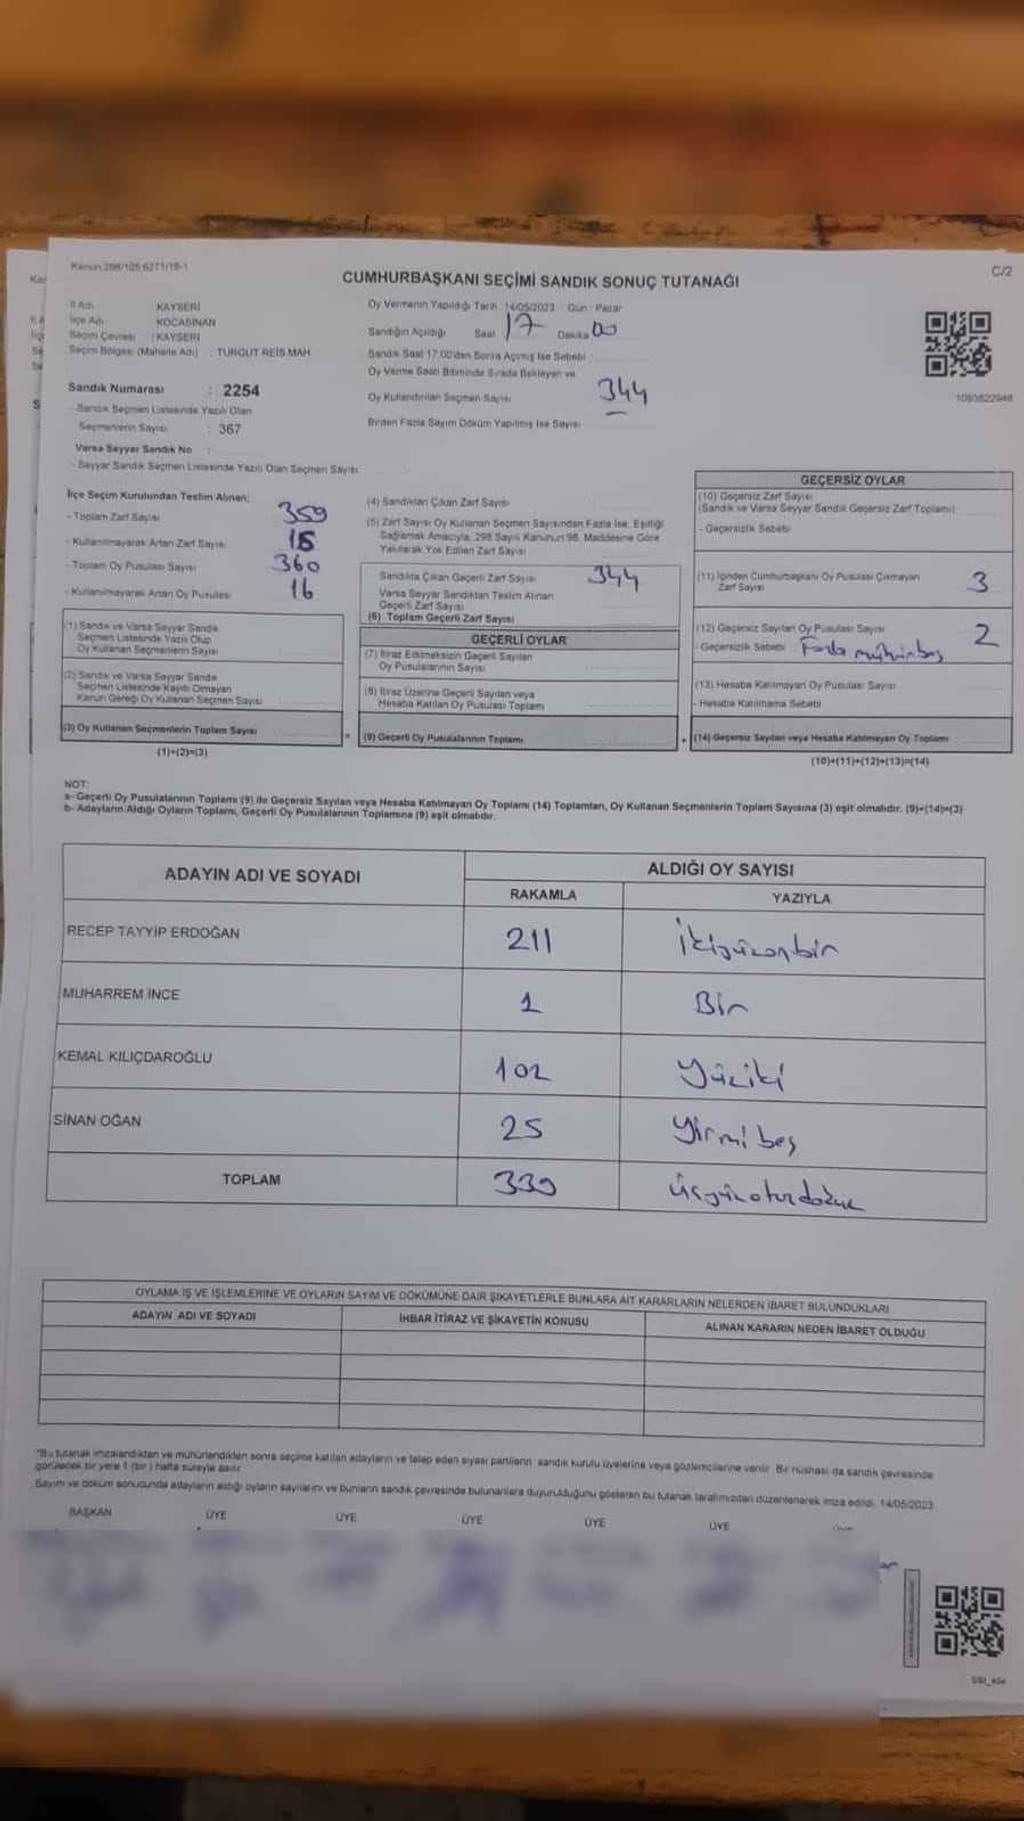 Kanun 298/105,6271/19-1
C/2
CUMHURBAŞKANI SEÇİMİ SANDIK SONUÇ TUTANAĞI
İl Adı KAYSERİ
İlçe Adı KOCASİNAN
Seçim Çevresi : KAYSERİ
Seçim Bölgesi (Mahalle Adı) : TURGUT REİS MAH
Sandık Numarası : 2254
- Sandık Seçmen Listesinde Yazılı Olan
Seçmenlerin Sayısı : 367
Varsa Seyyar Sandık No :
- Seyyar Sandık Seçmen Listesinde Yazılı Olan Seçmen Sayısı
Oy Vermenin Yapıldığı Tarih :14/05/2023 Gün : Pazar
Sandığın Açıldığı Saat 17 Dakika 00
Sandık Saat 17.00'dan Sonra Açılmış İse Sebebi :
Oy Verme Saati Bitiminde Sırada Bekleyen ve
Oy Kullandırılan Seçmen Sayısı 344
Birden Fazla Sayım Döküm Yapılmış İse Sayısı
1093822948
İlçe Seçim Kurulundan Teslim Alınan;
- Toplam Zarf Sayısı 359
- Kullanılmayarak Artan Zarf Sayısı 15
- Toplam Oy Pusulası Sayısı 360
- Kullanılmayarak Artan Oy Pusulası 16
(1) Sandık ve Varsa Seyyar Sandık
Seçmen Listesinde Yazılı Olup
Oy Kullanan Seçmenlerin Sayısı
(2) Sandık ve Varsa Seyyar Sandık
Seçmen Listesinde Kayıtlı Olmayan
Kanun Gereği Oy Kullanan Seçmen Sayısı
(3) Oy Kullanan Seçmenlerin Toplam Sayısı
(1)+(2)=(3)
(4) Sandıktan Çıkan Zarf Sayısı
(5) Zarf Sayısı Oy Kullanan Seçmen Sayısından Fazla İse, Eşitliği
Sağlamak Amacıyla, 298 Sayılı Kanunun 98. Maddesine Göre
Yakılarak Yok Edilen Zarf Sayısı
Sandıkta Çıkan Geçerli Zarf Sayısı 344
Varsa Seyyar Sandıktan Teslim Alınan
Geçerli Zarf Sayısı
(6) Toplam Geçerli Zarf Sayısı
GEÇERLİ OYLAR
(7) İtiraz Edilmeksizin Geçerli Sayılan
Oy Pusulalarının Sayısı
(8) İtiraz Üzerine Geçerli Sayılan veya
Hesaba Katılan Oy Pusulası Toplamı
(9) Geçerli Oy Pusulalarının Toplamı
GEÇERSİZ OYLAR
(10) Geçersiz Zarf Sayısı
(Sandık ve Varsa Seyyar Sandık Geçersiz Zarf Toplamı)
- Geçersizlik Sebebi
(11) İçinden Cumhurbaşkanı Oy Pusulası Çıkmayan 3
Zarf Sayısı
(12) Geçersiz Sayılan Oy Pusulası Sayısı 2
- Geçersizlik Sebebi : Fazla mühür
(13) Hesaba Katılmayan Oy Pusulası Sayısı
- Hesaba Katılmama Sebebi
(14) Geçersiz Sayılan veya Hesaba Katılmayan Oy Toplamı
(10)+(11)+(12)+(13)=(14)
NOT:
a- Geçerli Oy Pusulalarının Toplamı (9) ile Geçersiz Sayılan veya Hesaba Katılmayan Oy Toplamı (14) Toplamları, Oy Kullanan Seçmenlerin Toplam Sayısına (3) eşit olmalıdır. (9)+(14)=(3)
b- Adayların Aldığı Oyların Toplamı, Geçerli Oy Pusulalarının Toplamına (9) eşit olmalıdır.
ADAYIN ADI VE SOYADI
ALDIĞI OY SAYISI
RAKAMLA YAZIYLA
RECEP TAYYİP ERDOĞAN 211 İkiyüzonbir
MUHARREM İNCE 1 Bir
KEMAL KILIÇDAROĞLU 102 Yüziki
SİNAN OĞAN 25 Yirmi beş
TOPLAM 339 üçyüzotuzdokuz
OYLAMA İŞ VE İŞLEMLERİNE VE OYLARIN SAYIM VE DÖKÜMÜNE DAİR ŞİKAYETLERLE BUNLARA AİT KARARLARIN NELERDEN İBARET BULUNDUKLARI
ADAYIN ADI VE SOYADI İHBAR İTİRAZ VE ŞİKAYETİN KONUSU ALINAN KARARIN NEDEN İBARET OLDUĞU
*Bu tutanak imzalandıktan ve mühürlendikten sonra seçime katılan adayların ve talep eden siyasi partilerin sandık kurulu üyelerine veya gözlemcilerine verilir. Bir nüshası da sandık çevresinde
görülecek bir yere 1 (bir) hafta süreyle asılır.
Sayım ve döküm sonucunda adayların aldığı oyların sayılarını ve bunların sandık çevresinde bulunanlara duyurulduğunu gösteren bu tutanak tarafımızdan düzenlenerek imza edildi. 14/05/2023
BAŞKAN ÜYE ÜYE ÜYE ÜYE ÜYE